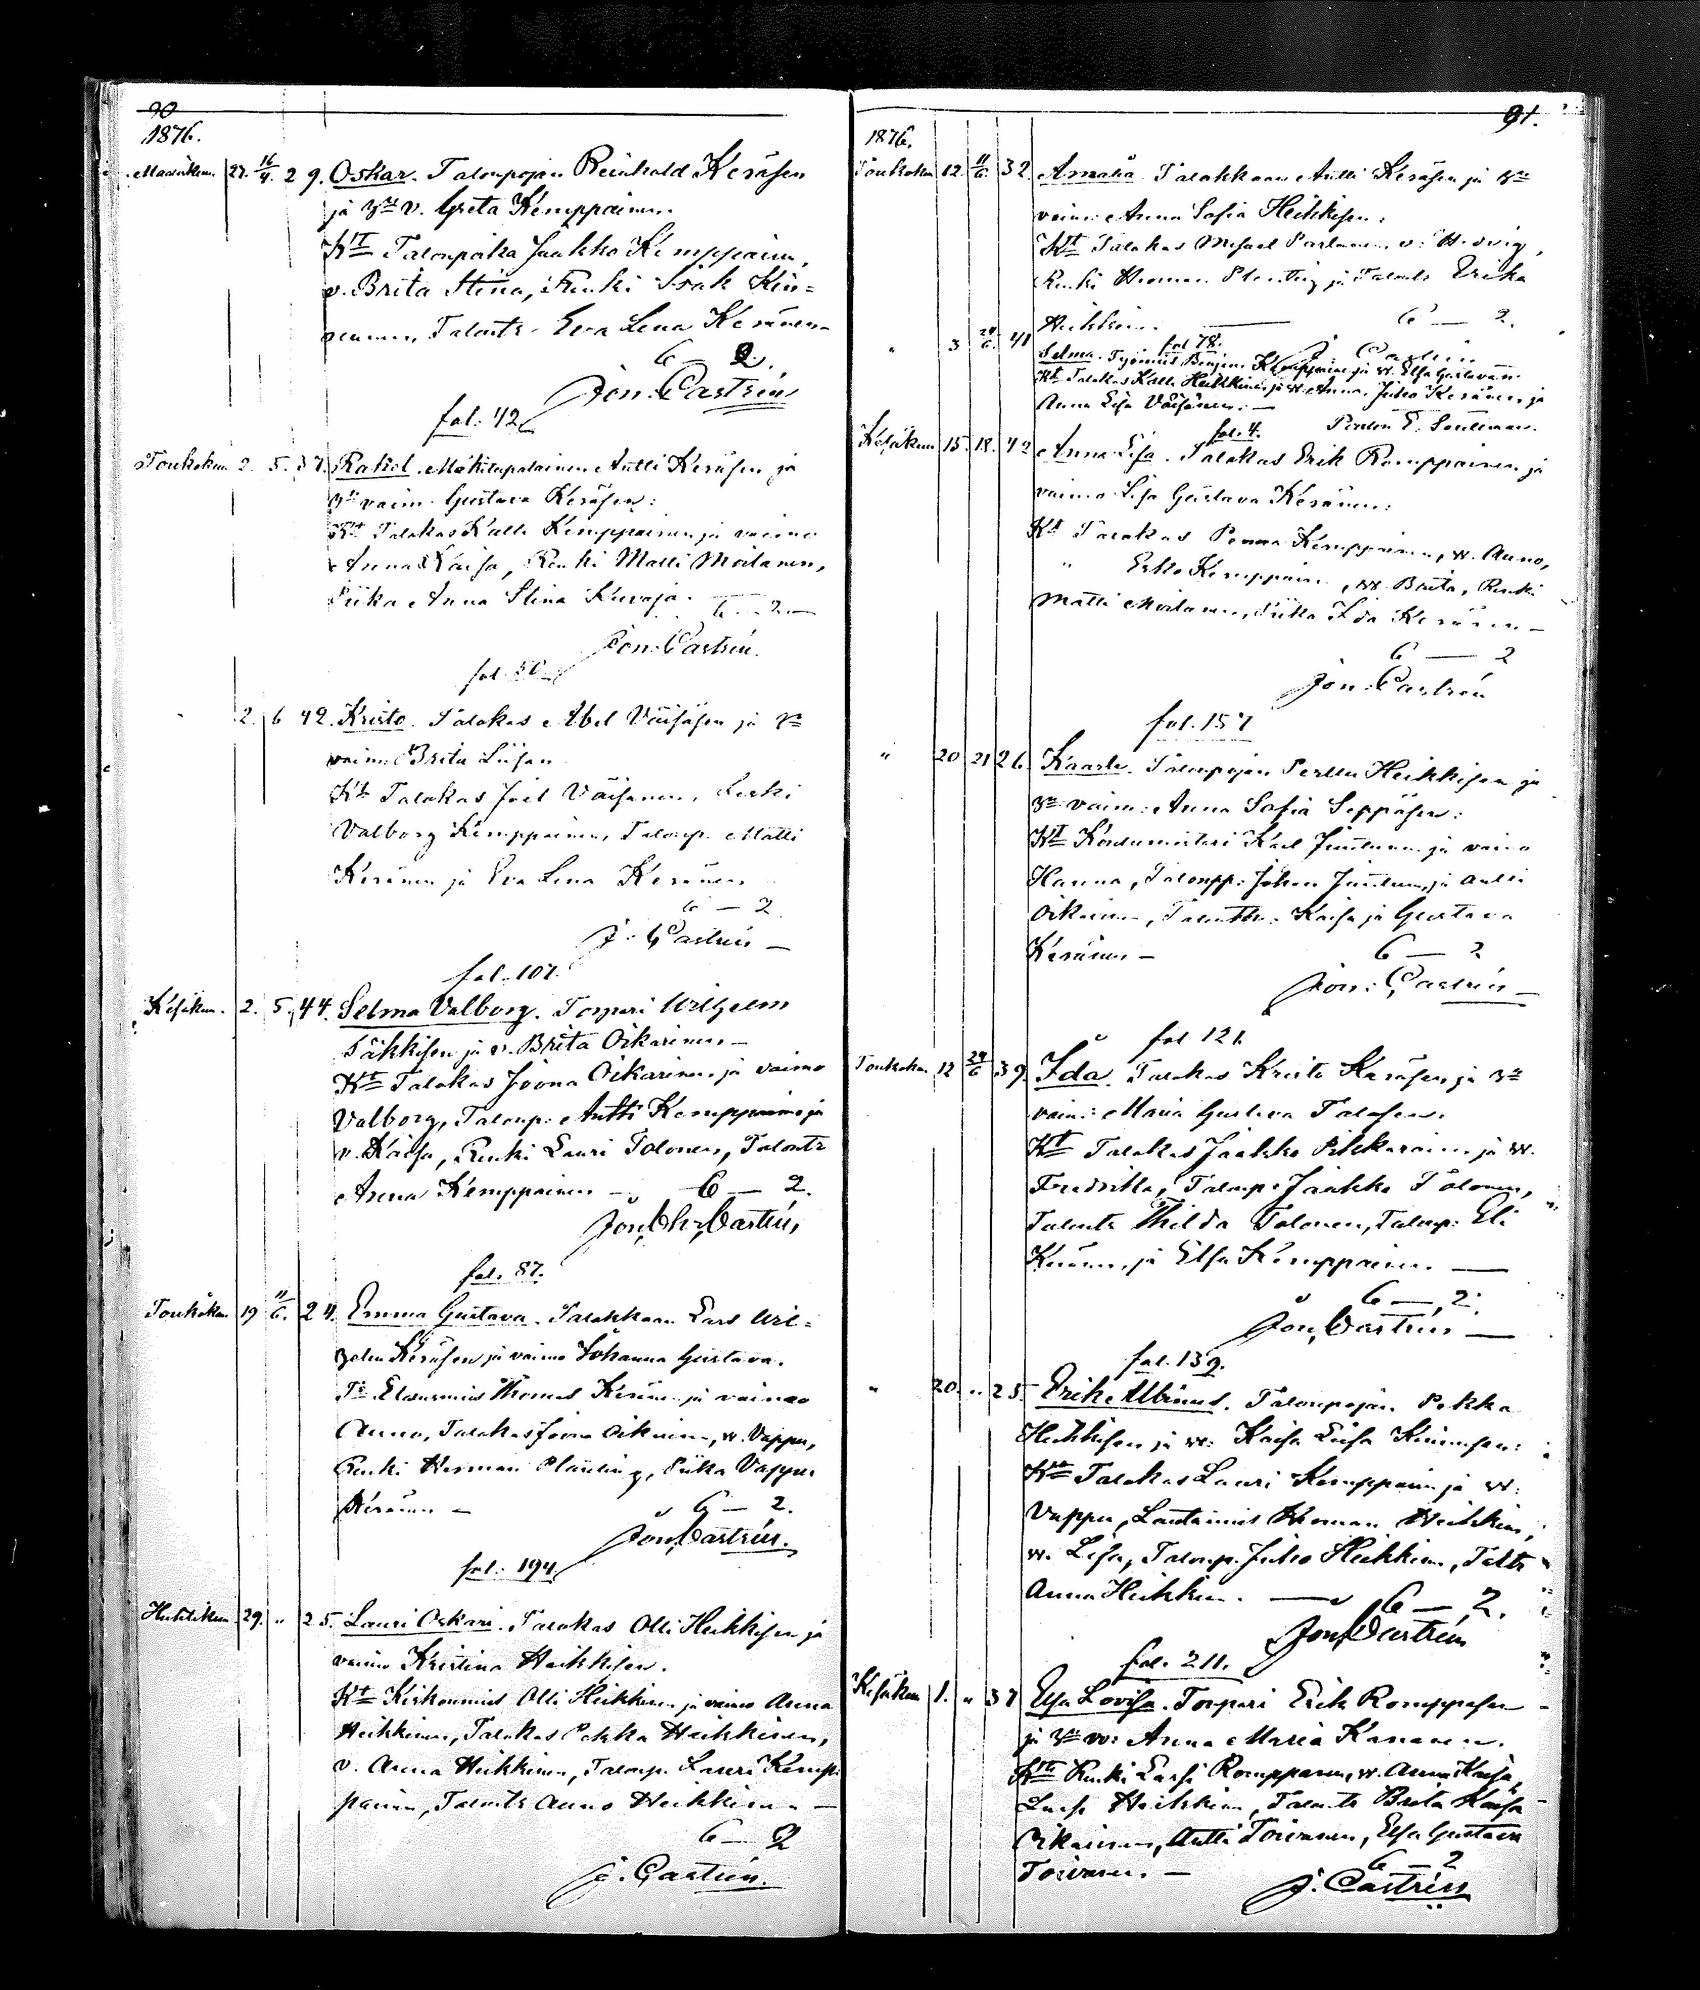 90
1876.
Maalisk. 27. 16/4. 29. Oskar. Talonpojan Reinhold Keräsen
ja v. Greta Kemppainen.
Kt Talonpoika Jaakko Kemppainen,
v. Brita Stina, Renki Isak Kin=
nunen, Talontr. Eva Lena Keränen
6 — 2.
Jon: Castrén
fol. 42
Toukokuu 2. 5. 37. Rakel. Mäkitupalainen Antti Keräsen ja
vaim. Gustava Keräsen:
Kt Talokas Kalle Kemppainen ja vaimo
Anna Kaisa, Renki Matti Moilanen,
Piika Anna Stina Kuvaja.
6 — 2 —
Jon: Castrén.
fol. 50
2. 6 42. Kristo. Talokas Abel Väisäsen ja
vaim: Brita Liisan
Kt Talokas Joel Väisänen, Leski
Valborg Kemppainen, Talonp. Matti
Keränen ja Eva Lena Keränen
6 — 2
J: Castrén —
fol. 107.
Kesäkuu. 2. 5. 44. Selma Valborg. Torpari Wilhelm
Säkkisen ja v. Brita Oikarinen —
Kt Talokas Joona Oikarinen ja vaimo
Valborg, Talonp. Antti Kemppainen ja
v. Kaisa, Renki Lauri Tolonen, Talontr
Anna Kemppainen — 6 — 2.
Jon. Chr. Castrén,
fol. 87.
Toukokuu 19 11/6. 24. Emma Gustava. Talokkaan Lars Wil=
helm Keräsen ja vaimo Johanna Gustava.
Thomas Keränen ja vaimo
Anna, Talokas Joona Oikarinen, w. Vappu,
Renki Herman Planting, Piika Vappu
Keränen — 6 — 2.
Jon. Castrén.
fol. 194
Huhtikuu 29. " 25. Lauri Oskari. Talokas Olli Heikkisen ja
vaimo Kristina Heikkisen.
Kt Kirkonmies Olli Heikkinen ja vaimo Anna
Heikkinen, Talokas Pekka Heikkinen,
v. Anna Heikkinen, Talonp. Lauri Kemp-
painen, Talontr Anna Heikkinen —
6 — 2
J. Castrén.
91.
1876.
Toukokuu 12 11/6. 32. Amalia. Talokkaan Antti Keräsen ja
vaim: Anna Sofia Heikkisen:
Kt Talokas Mikael Partanen, v: Hedvig,
Renki Herman Planting ja Talontr Erika
Heikkinen. — 6 — 2.
fol. 78. J. Castrén
" 3 41 Selma. Työmies Benjam. Kemppainen ja w. Elsa Gustavan.
Kt Talokas Kalle Heikkinen ja w. Anna, Juho Keränen ja
Anna Lisa Väisänen: —
fol. 4.
Kesäkuu 15. 18. 42 Anna Lisa. Talokas Erik Romppainen ja
vaimo Lisa Gustava Keränen:
Kt Talokas Kemppainen, w. Anna,
" Erkki Kemppainen, w. Brita, Renki
Matti Moilanen, Piika Ida Keränen —
6 — 2
Jon: Castrén
fol. 157
" 20 21 26. Kaarle. Talonpojan Perttu Heikkisen ja
vaim: Anna Sofia Seppäsen:
Kt Karl Juntunen ja vaimo
Hanna, Talonpp: Johan Juntunen ja Antti
Oikarinen, Talontr: Kaisa ja Gustava
Keränen — 6 — 2
Jon: Castrén —
fol 121.
Toukokuu 12 24/6 39. Ida. Talokas Kristo Keräsen ja
vaim: Maria Gustava Tolosen.
Kt Talokas Jaakko Pikkarainen ja w.
Fredrikka, Talonp: Jaakko Tolonen,
Talontr Thilda Tolonen, Talonp: Eli
Keränen ja Elsa Kemppainen. —
6 — 2.
Jon, Castrén —
fol. 139.
" 20. " 25 Erik Albinus. Talonpojan Pekka
Heikkisen ja w: Kaisa Liisa Kinnusen:
Kt Talokas Lauri Kemppainen ja w:
Vappu, Lautamies Herman Heikkinen,
w. Lisa, Talonp. Juho Heikkinen, Taltr
Anna Heikkinen. — 6 — 2.
Jon, Castrén
fol. 211.
Kesäkuu 1. " 37 Elsa Lovisa. Torpari Erik Romppasen
ja w: Anna Maria Kananen.
Kt Renki Lassi Romppanen, w. Anna Kaisa,
Lassi Heikkinen, Talontr Brita Kaisa
Oikarinen, Antti Toivanen, Elsa Gustava
Toivanen. — 6 — 2
J. Castrén